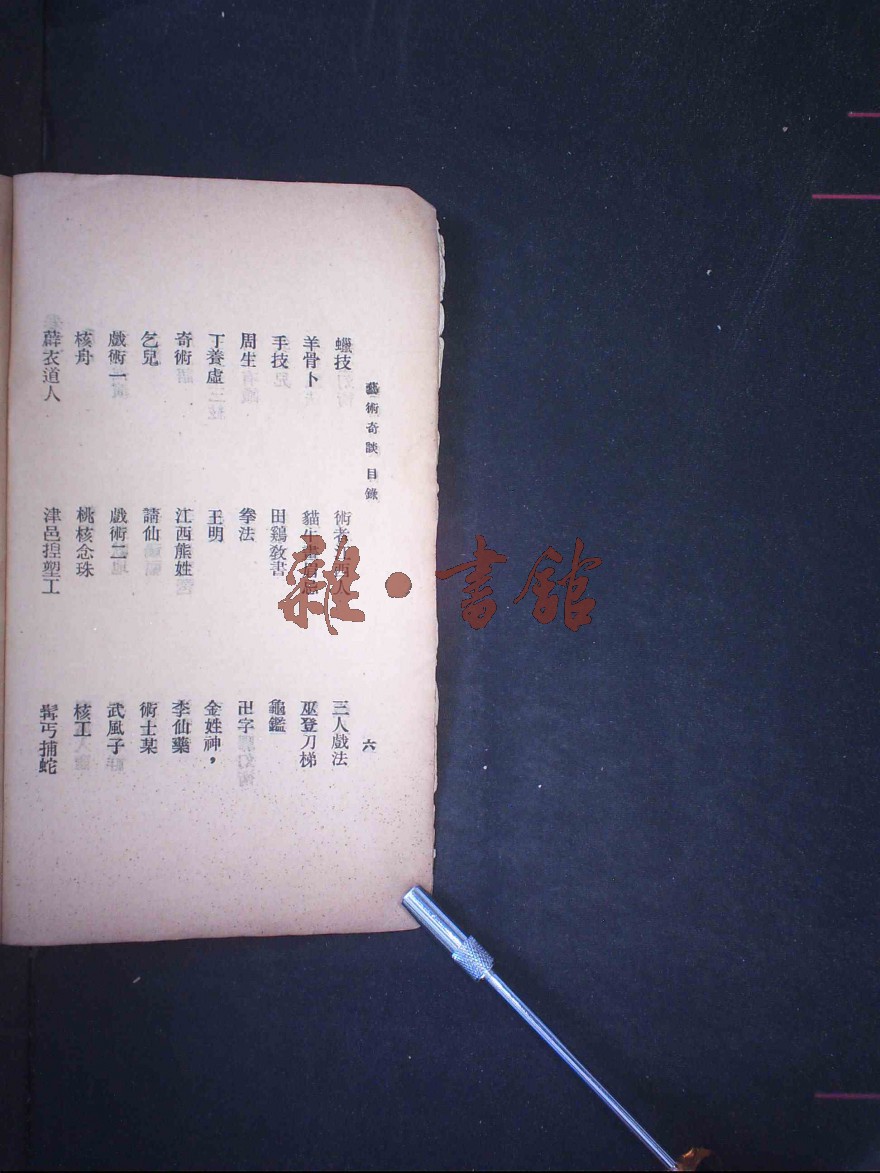 藝術奇談 目錄 六
蠟技 術者江西人 三人戲法
羊骨卜 貓牛 巫登刀梯
手技 田鷄教書 龜鑑
周生 拳法 卍字
丁養虛 王明 金姓神，
奇術 江西熊姓 李仙藥
乞兒 請仙 術士某
戲術一 戲術二 武風子
核舟 桃核念珠 核工
薜衣道人 津邑捏塑工 髯丐捕蛇
雜·書館